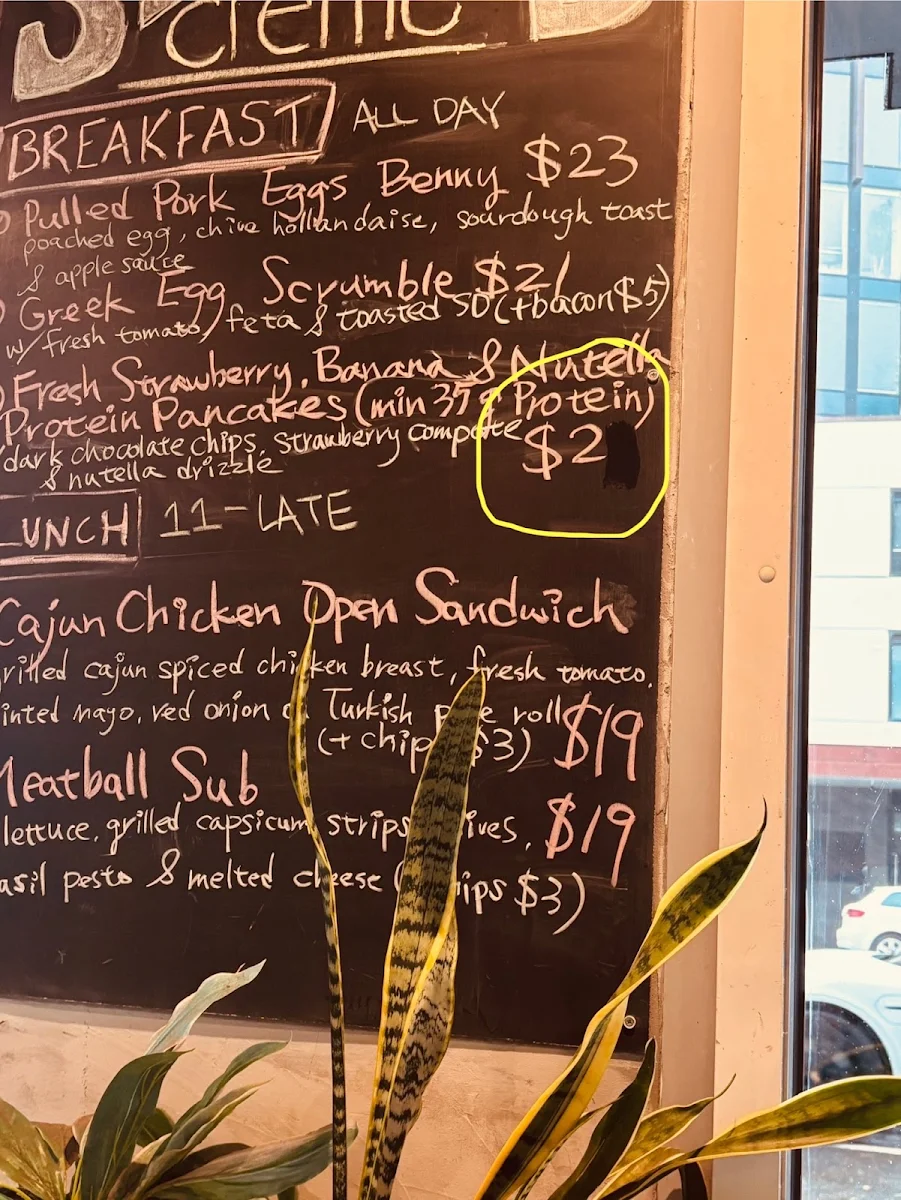 BREAKFAST ALL DAY
Pulled Pork Eggs Benny $23
poached egg, chive hollandaise, sourdough toast
& apple sauce
Greek Egg Scrumble $21
w/ fresh tomato, feta & toasted SD (+bacon $5)
Fresh Strawberry, Banana & Nutella
Protein Pancakes (min 35g Protein)
dark chocolate chips, strawberry compote $2
& nutella drizzle
LUNCH 11-LATE
Cajun Chicken Open Sandwich
grilled cajun spiced chicken breast, fresh tomato,
minted mayo, red onion Turkish roll $19
(+ chips $3)
Meatball Sub
lettuce, grilled capsicum strips, $19
basil pesto & melted cheese (chips $3)